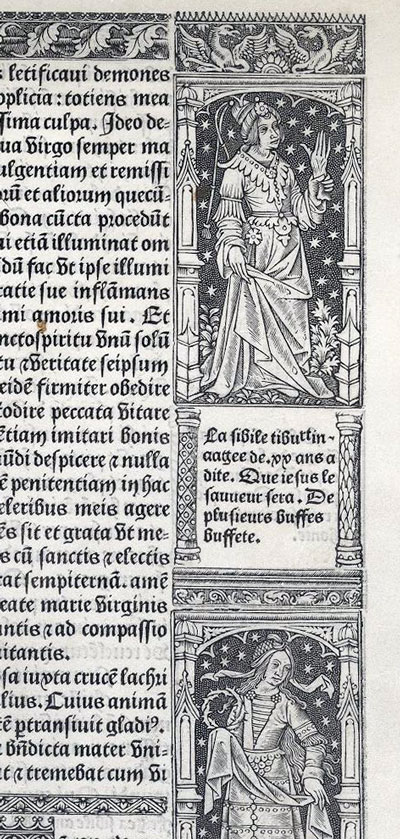 s letificaui demones
pplicia : totiens mea
ssima culpa. Ideo de-
ua virgo semper ma
ulgentiam et remissi
orū et aliorum quecū-
bona cūcta procedūt
ui etiā illuminat om
dū fac vt ipse illumi
catie sue inflāmans
mi amoris sui. Et
nctospiritu vnū solū
tu ⁊ veritate seipsum
eidē firmiter obedire
todire peccata vitare
ētiam imitari bonis
ūdi despicere ⁊ nulla
ē penitentiam in hac
eleribus meis agere
ēs sit et grata vt me-
s cū sanctis ⁊ electis
rat sempiternā. amē
eate marie virginis
antis ⁊ ad compassio
uitantis.
sa iuxta crucē lachri
lius. Cuius animā
tē ꝑtransiuit gladiꝰ.
e bn̄dicta mater vni-
at ⁊ tremebat cum vi
La sibile tiburtin-
aagee de. xx ans a
dite. Que iesus le
sauueur sera. De
plusieurs buffes
buffete.